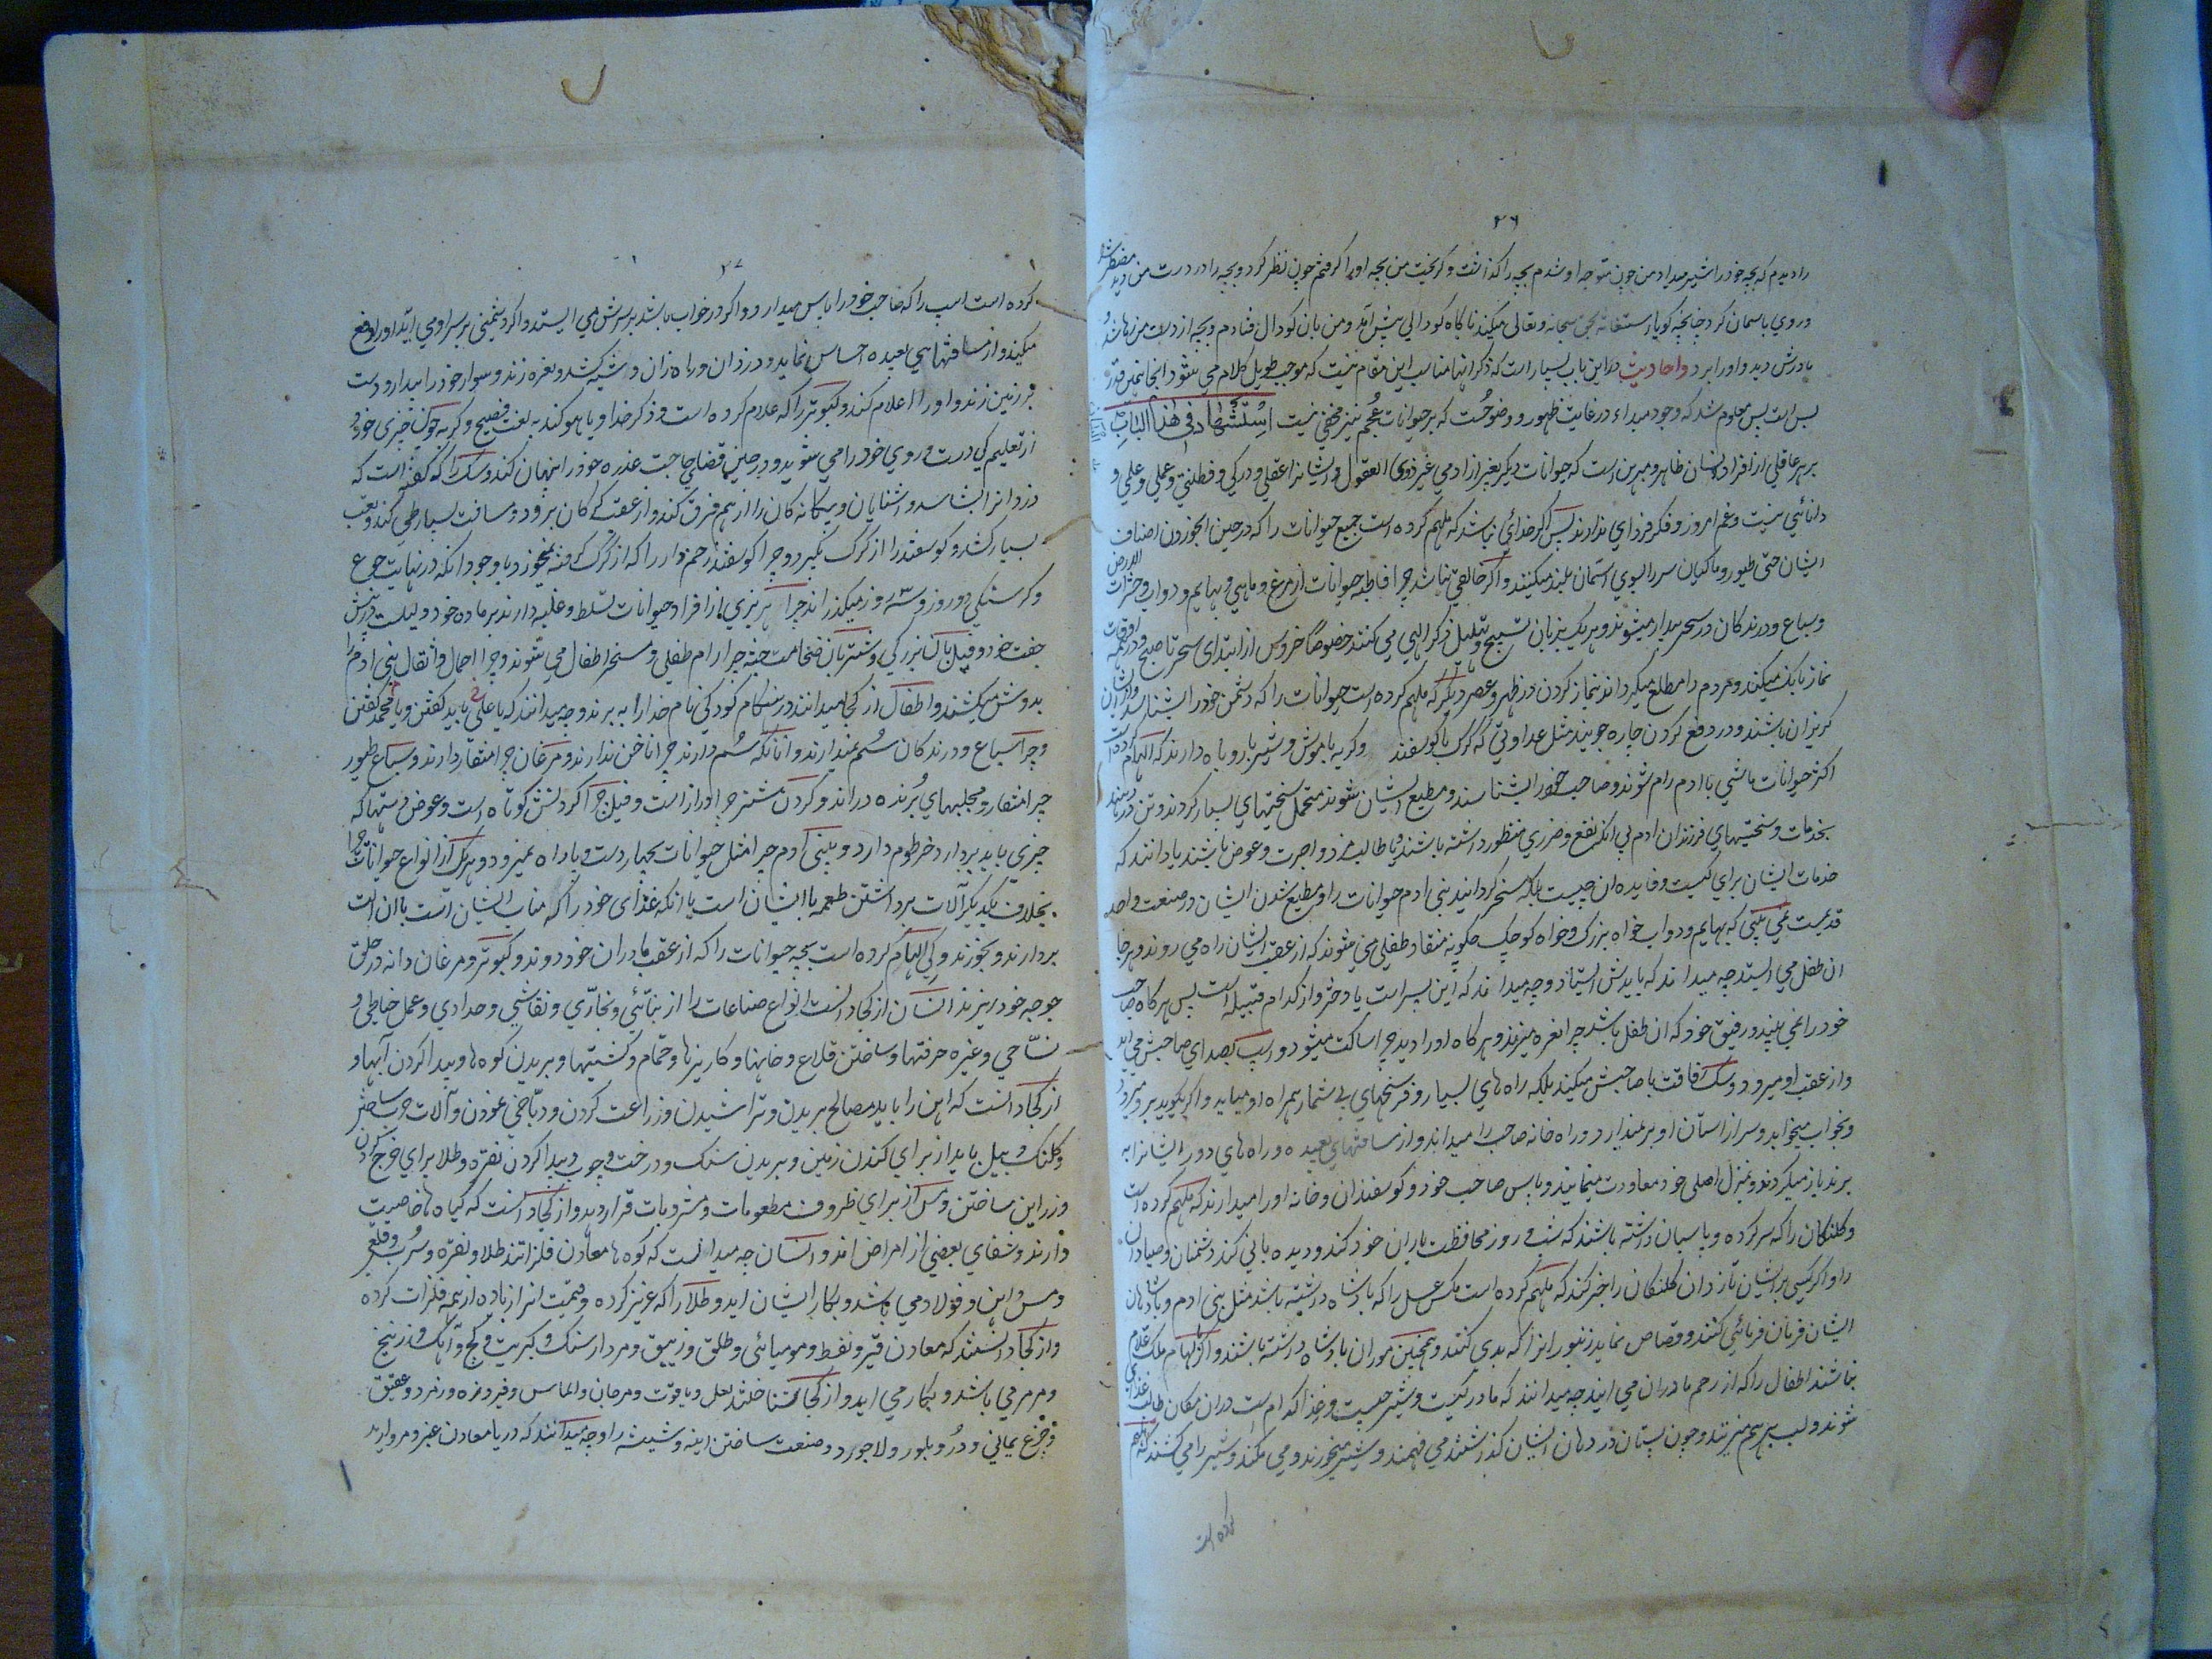 ۲۶
را دیدم که بچه خود را شیر میداد من چون متوجه او شدم بچه را گذاشت و گریخت من بچه او را گرفتم چون نظر کرد و بچه را در دست من دید مضطر شد
و روی باسمان کرد چنانچه گویا استغاثه بحق سبحانه و تعالی میکند ناگاه گودالی پیش آمد و من بان گودال فتادم و بچه از دست من رها شد و
مادرش دید و او را برد و احادیث در این باب بسیار است که ذکر انها مناسب این مقام نیست که موجب طویل کلام می شود اینجا همین قدر
بس است پس معلوم شد که وجود مبداء در غایت ظهور و وضوحست که بر حیوانات عجم نیز مخفی نیست استشهاد فی هذا الباب
بر هر عاقلی از افراد انسان ظاهر و مبرهن است که حیوانات دیگر بغیر از ادمی غیر ذوی العقول و ایشانرا عقلی و درکی و فطنتی و عملی و علمی و
دانائی نیست و غم امروز و فکر فردای ندارند پس اگر خدائی نباشد که ملهم کرده است جمیع حیوانات را که در حین ابخوردن اصناف
ایشان حتی طیور و ماکیان سر را بسوی اسمان بلند میکنند و اگر خالقی نباشد چرا قاطبه حیوانات از مرغ و ماهی و بهایم و دواب و حشرات الارض
و سباع و درندگان در سحر بیدار میشوند و هر یک بزبان تسبیح و تهلیل ذکر الهی می کنند خصوصا خروس از ابتدای سحر تا صبح و در همه اوقات
نماز بانک میکند و مردم را مطلع میگرداند بنماز کردن در ظهر و عصر و دیگر که ملهم کرده است حیوانات را که دشمن خود را بشناسد و از ایشان
گریزان باشند و در دفع کردن چاره جویند مثل عداوتی که گرگ با گوسفند و گربه با موش و شیر با روباه دارند که الهام کرده است
اکثر حیوانات ماشی با ادم رام شوند و صاحب خود را بشناسند و مطیع ایشان شوند متحمل سختیهای بسیار گردند و تن در دهند
بخدمات و سختیهای فرزندان ادم بی انکه نفع و ضرری منظور داشته باشند و یا طالب مزد و اجرت و عوض باشند یا دانند که
خدمات ایشان برای کیست و فایده ان چیست بلکه مسخر گردانید بنی ادم حیوانات را و مطیع شدن ایشان در صنعت واحد
قدیمست نمی بینی که بهایم و دواب خواه بزرگ و خواه کوچک چگونه منقاد طفلی می شوند که از عقب ایشان راه می روند و هر جا
ان طفل می ایستد چه میداند که باید پیش ایستاد و چه میداند که این پسر است یا دختر و از کدام قبیله است پس هر گاه صاحب
خود را نمی بیند و رفیق خود که ان طفل باشد چرا نعره میزند و هر گاه او را دید چرا ساکت میشود و اسب بصدای صاحبش می اید
و از عقب او میرود و سگ رفاقت با صاحبش میکند بلکه راه های بسیار و فرسخهای بی شمار همراه او میاید و اگر بگوید برو میرود
و بخواب میخوابد و سر از استان او بر نمیدارد و راه خانه صاحب را میداند و از مسافتهای بعیده و راه های دور ایشانرا به
برند باز میگردند و بمنزل اصلی خود معاودت مینمایند و پاس صاحب خود و گوسفندان و خانه او را میدارند که ملهم کرده است
و کلنگان را که سر کرده و پاسبان داشته باشند که شب و روز محافظت یاران خود کند و دیده بانی کند دشمنان و صیادان
را و اگر کسی بر ایشان تازد ان کلنگان را خبر کند که ملهم کرده است مگس عسل را که پادشاه داشته باشد مثل بنی ادم و پادشاهان
ایشان فرمان فرمائی کنند و قصاص نماید زنبورانرا که بدی کنند و همچنین موران پادشاه داشته باشند و اگر الهام ملک علام
نباشد اطفال را که از رحم مادران می ایند چه میدانند که مادر کیست و شیر چیست و غذا کدام است در ان مکان طالب غذا می
شوند و لب بر هم میزنند و چون پستان در دهان ایشان گذاشتند می فهمند و شیر میخورند و می مکند و شیر را می کشند که ملهم
کرده است
۲۷
کرده است اسب را که صاحب خود را پاس میدارد و اگر در خواب باشد بر سرش می ایستد و اگر دشمنی بر سر او می اید او را دفع
میکند و از مسافتهای بعیده احساس نماید و دزدان و راه زنان و شیهه کشد و نعره زند و سوار خود را بیدار و دست
بر زمین زند و او را اعلام کند و کبوتر را که علام کرده است و ذکر خدا و یا هو کند به لغت فصیح و گربه چون چیزی خورد
از تعلیم کی دست و روی خود را می شوید و در حین قضای حاجت عذره خود را پنهان کند و سگ را که گفته است که
دزدانرا بشناسد و اشنایان و بیگانه گان را از هم فرق کند و از عقب کسان برود و مسافت بسیار طی کند و تعب
بسیار کشد و گوسفند را از گرگ نگیرد و چرا گوسفند زخم دار را که از گرگ گرفته نمیخورد با وجود انکه در نهایت جوع
و گرسنگی دو روز و سه روز میگذراند چرا هر نری از افراد حیوانات تسلط و غلبه دارند بر ماده خود
جفت خود و فیل بان بزرگی و شتر بان ضخامت جثه چرا رام طفلی و مسخر اطفال می شوند و چرا احمال و اثقال بنی ادم را
بدوش میکشند و اطفال از کجا میدانند در هنگام کودکی نام خدا را به برند و چه میدانند که یا علی باید گفتن و یا محمد گفتن
و چرا سباع و درندگان سم ندارند و انانکه سم دارند چرا ناخن ندارند و مرغان چرا منقار دارند و سباع طیور
چرا منقار و مخلبهای برنده دارند و گردن شتر چرا دراز است و فیل چرا گردنش کوتاه است و عوض دستها که
چیزی باید بردارد خرطوم دارد و بنی ادم چرا مثل حیوانات بچهار دست و پا راه نمیرود و هر یک از انواع حیوانات چرا
بخلاف یکدیگر آلات برداشتن طعمه با ایشان است با انکه غذای خود را که مناسب ایشان است با ان الت
بردارند و بخورند و کی الهام کرده است بچه حیوانات را که از عقب مادران خود دوند و کبوتر و مرغان دانه در حلق
جوجه خود ریزند انسان از کجا دانست انواع صناعات را از بنائی و نجاری و نقاشی و حدادی و عمل خیاطی و
نساجی و غیره حرفتها و ساختن قلاع و خانها و کاریزها و حمام و کشتیها و بریدن کوه ها و پیدا کردن آبها و
از کجا دانست که اهن را باید مصالح بریدن و تراشیدن و زراعت کردن و دباغی نمودن و آلات حرب ساختن
و کلنگ و بیل باید از برای کندن زمین و بریدن سنگ و درخت و چوب و پیدا کردن نقره و طلا برای خرج کردن
و زر این ساختن و مس از برای ظروف مطعومات و مشروبات قرار دهد و از کجا دانست که گیاه ها خاصیت
دارند و شفای بعضی از امراض اند و انسان چه میدانست که کوه ها معادن فلزاتند طلا و نقره و سرب و قلع
و مس و اهن و فولاد می باشد و بکار ایشان اید و طلا را که عزیز کرده و قیمت انرا زیاده از همه فلزات کرده
و از کجا دانستند که معادن قیر و نفط و مومیائی و طلق و زیبق و مردار سنگ و کبریت و گچ و آهک و زرنیخ
و مرمر می باشد و بکار می اید و از کجا شناختند لعل و یاقوت و مرجان و الماس و فیروزه و زمرد و عقیق
و جزع یمانی و در و بلور و لاجورد و صنعت ساختن اینه و شیشه را و چه میدانند که دریا معادن عنبر و مروارید